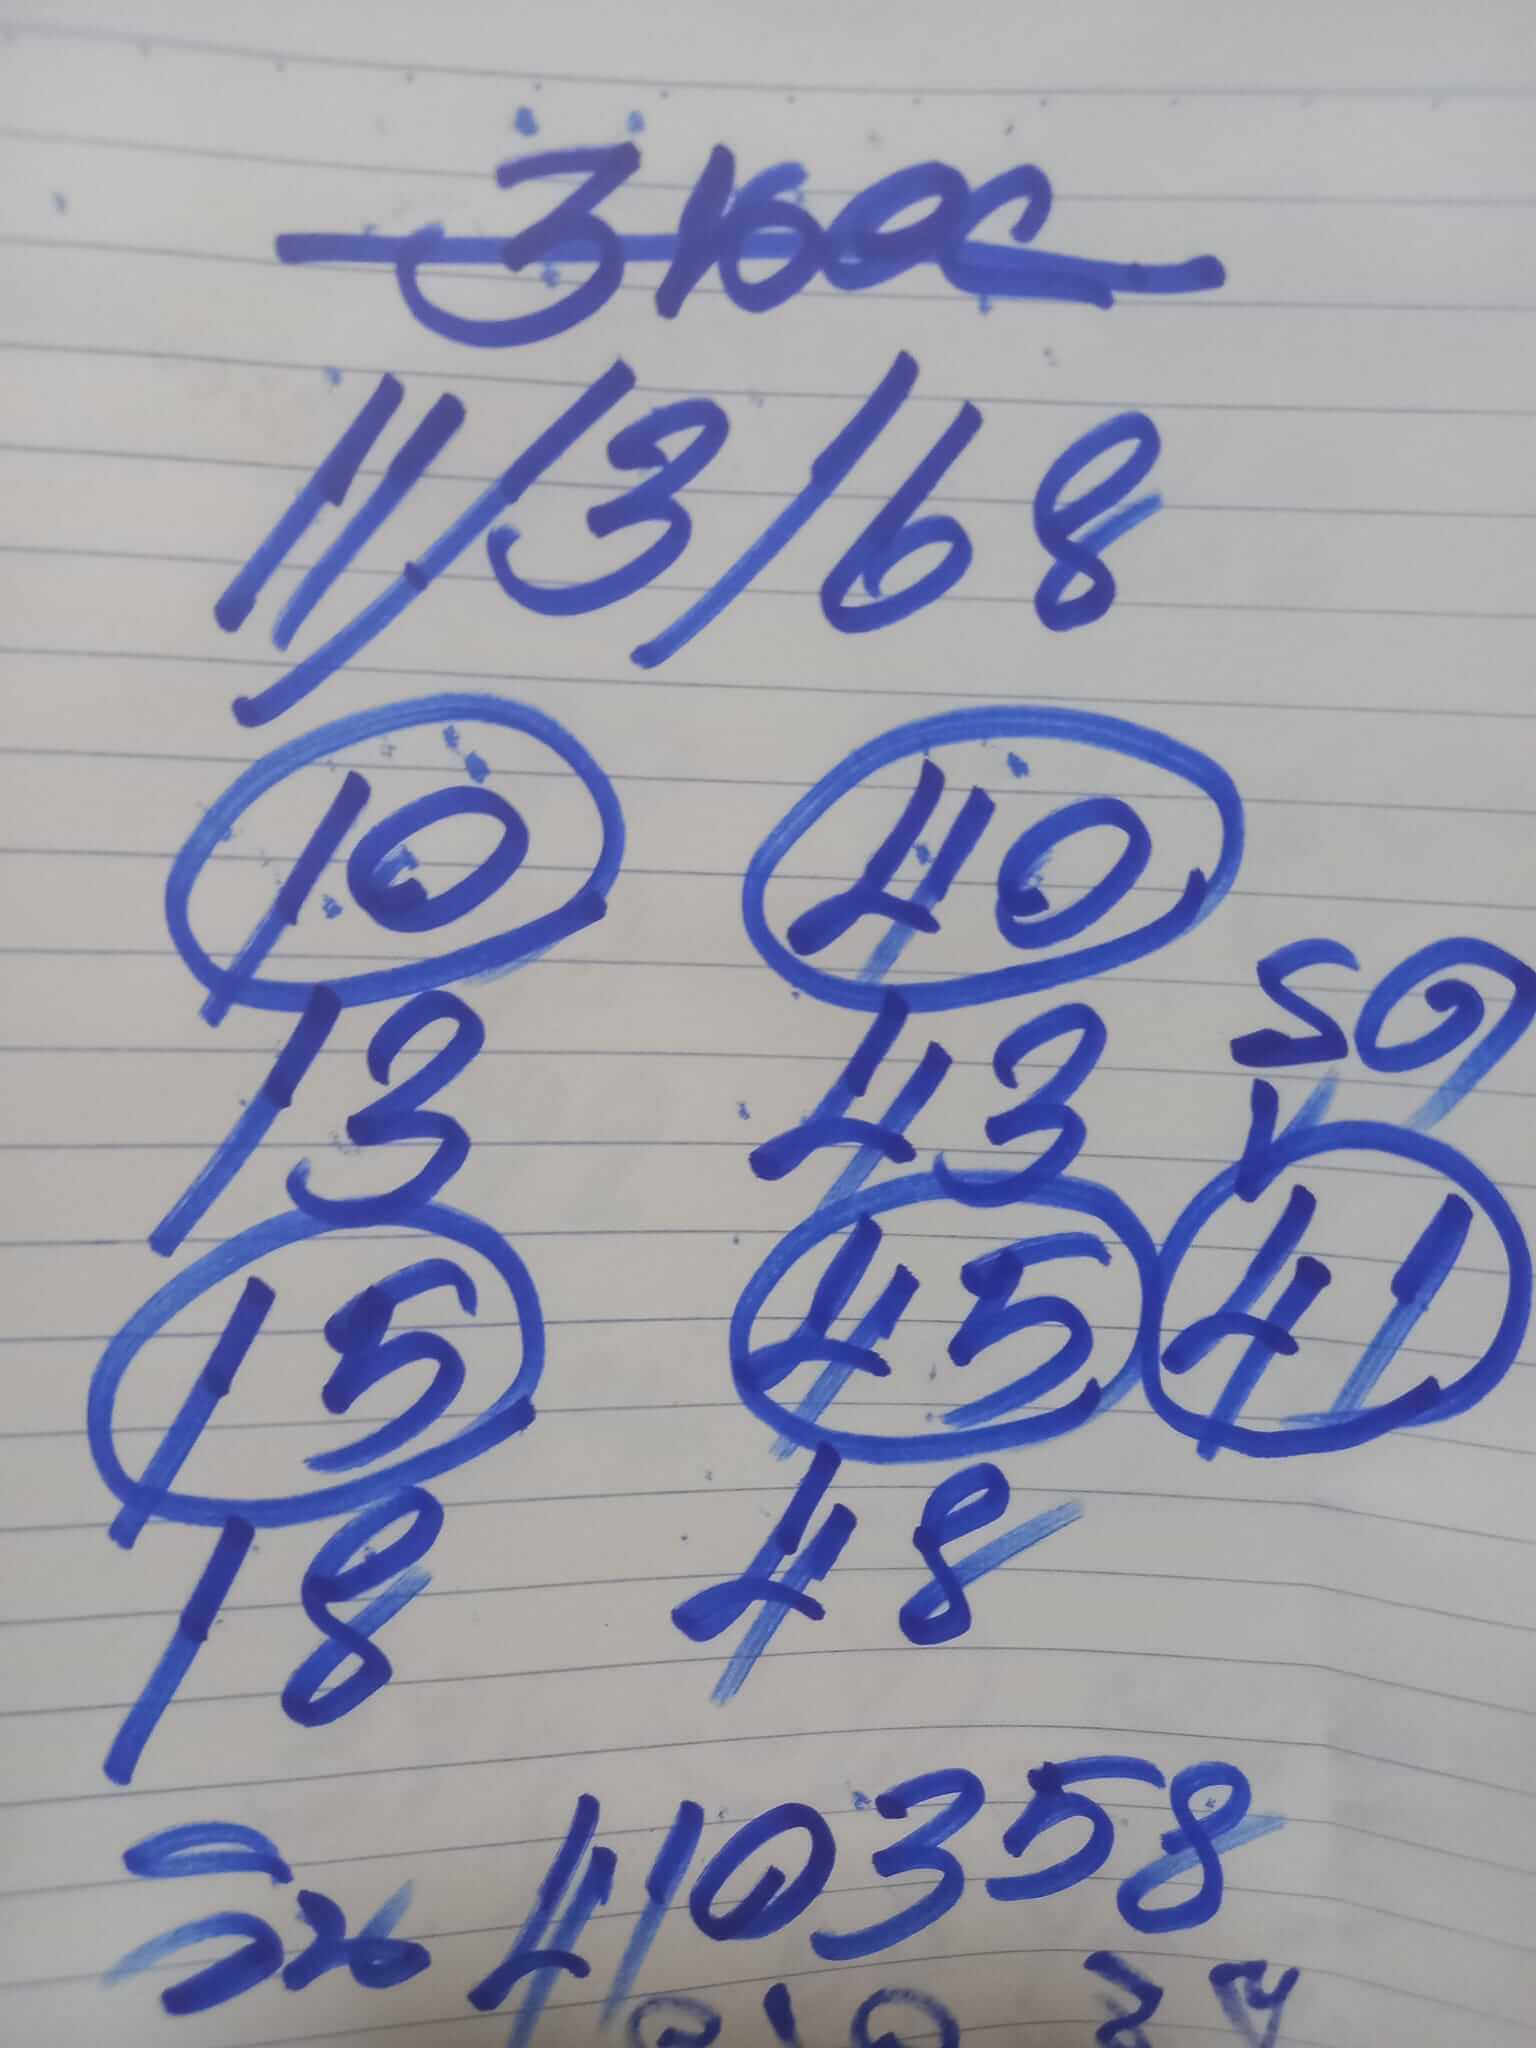 11/3/68
10 40
13 43
รถ
15 45 41
18 48
วิน 410358